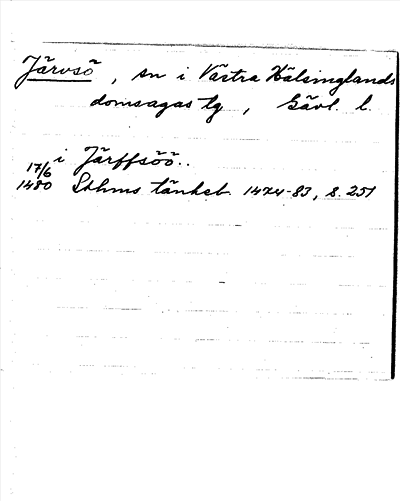 Järvsö, sn i Västra Hälsinglands
domsagas tg, Gävl. l.
i Järffsöö..
17/6
1480 Sthms tänkeb. 1474-83, s. 251